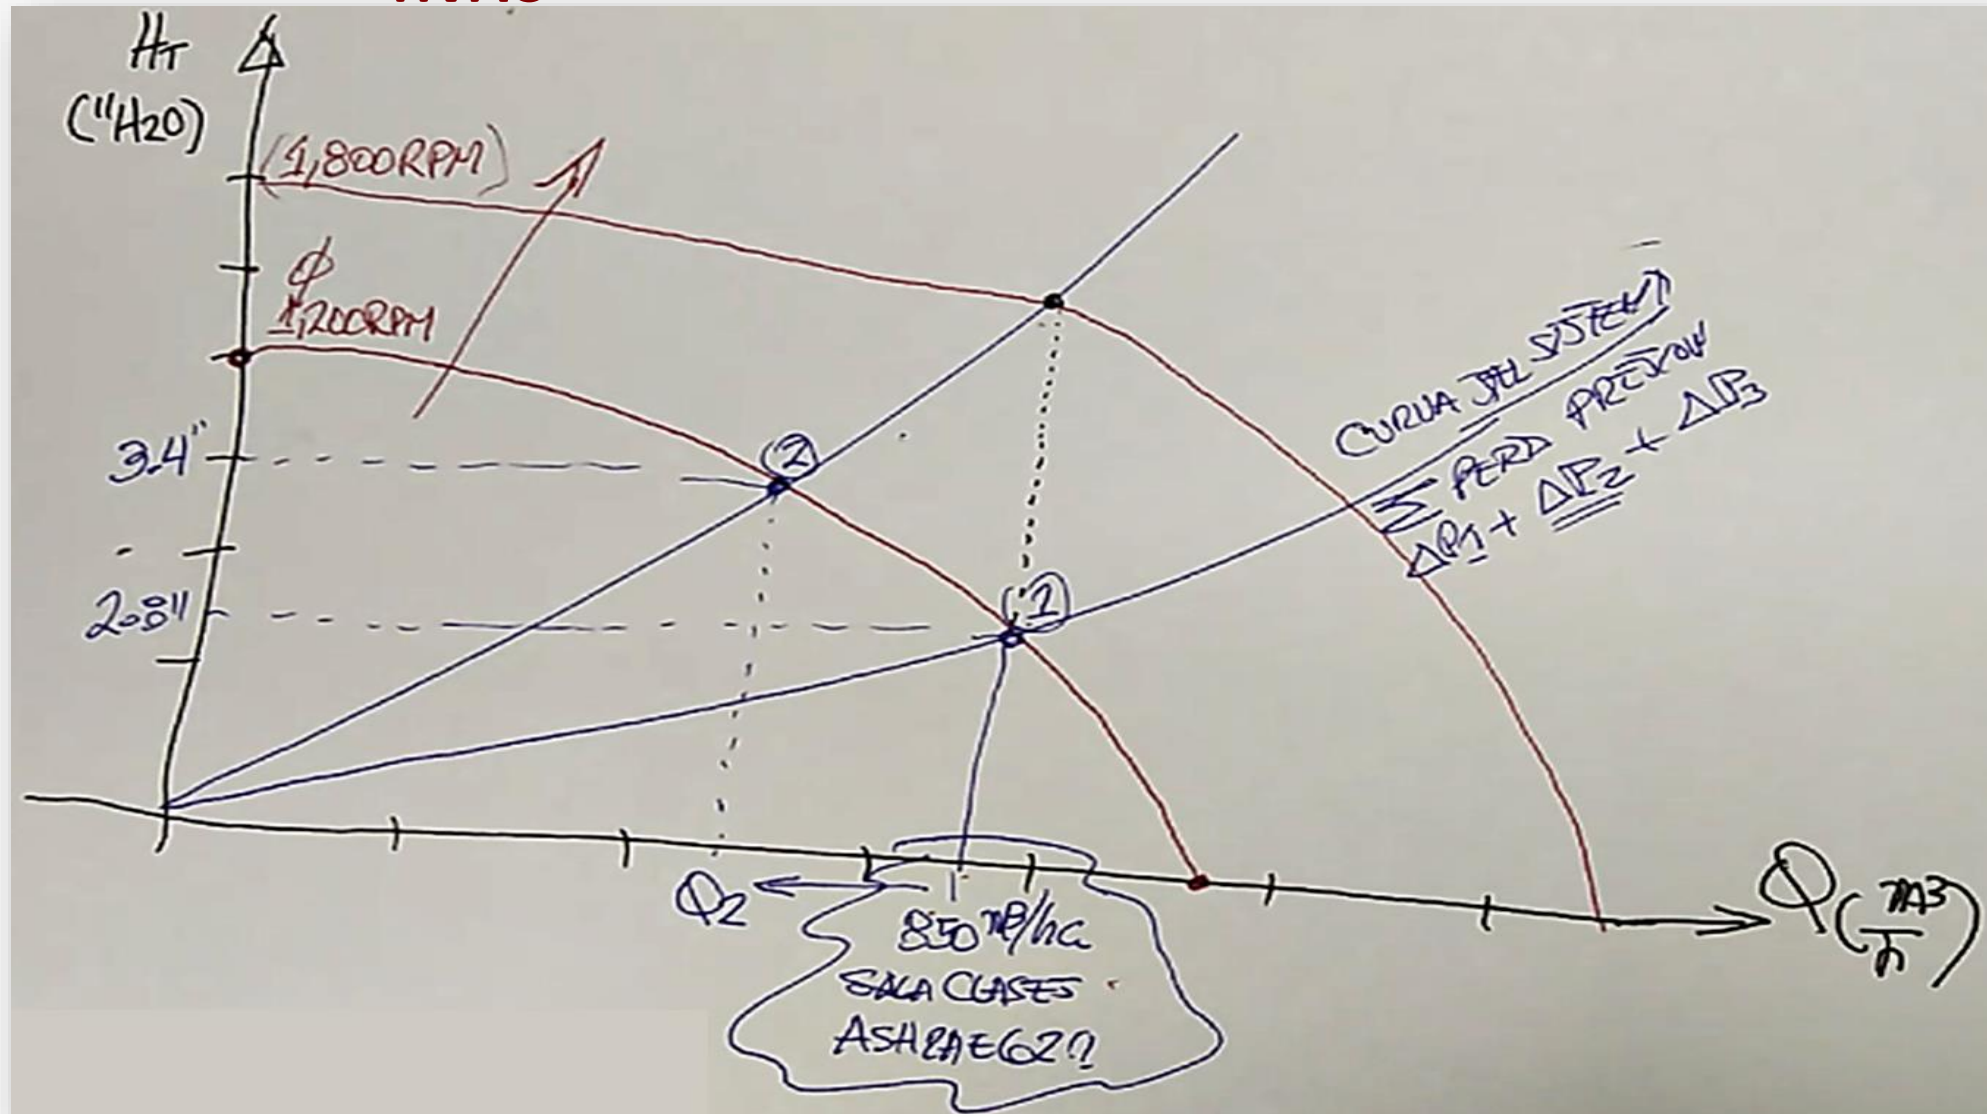 HT
("H2O)
(1,800RPM)
ϕ
1,200RPM
3.4"
2.8"
(2)
(1)
CURVA DEL SISTEMA
Σ PERD PRESION
ΔP1 + ΔP2 + ΔP3
Q2
850 m3/ha
SALA CLASES
ASHRAE 62.1
Q (m3/h)